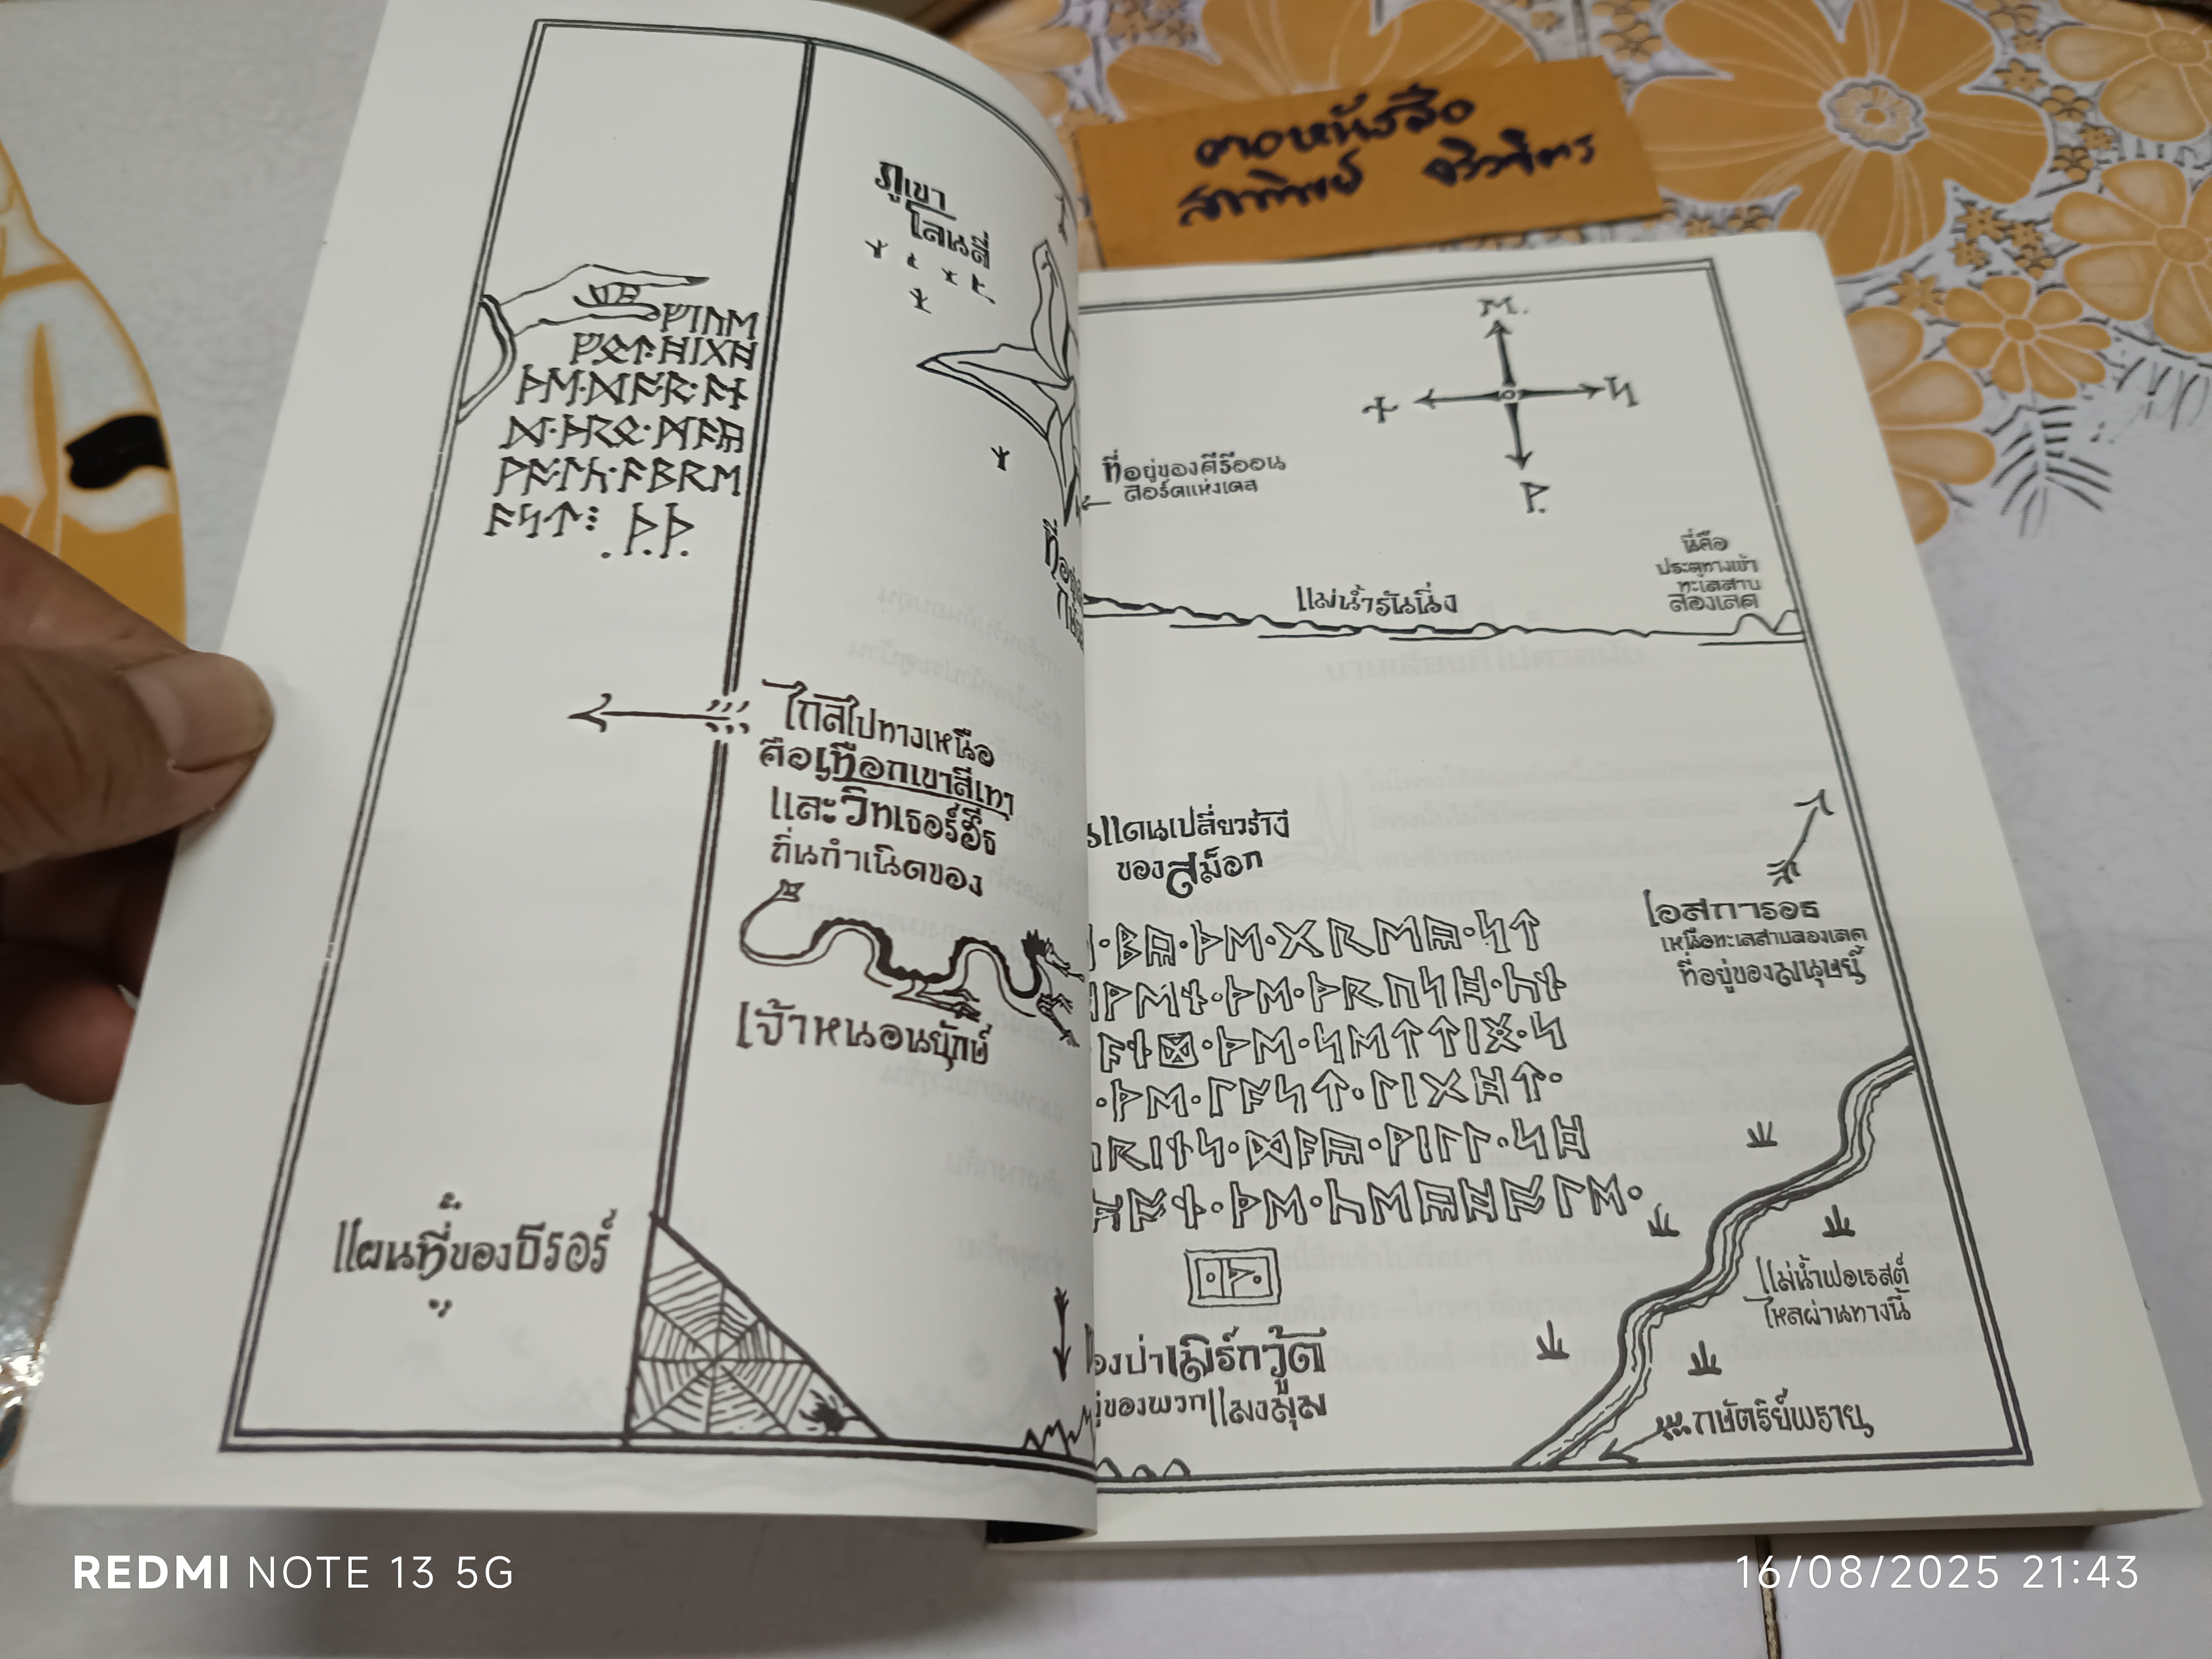 ภูเขา
โลนลี่
ᚠᛁᚢᛖ
ᚠᛟᛏ᛫ᚻᛁᚷᚻ
ᚦᛖ᛫ᛞᚩᚱ᛫ᚪᚾ
ᛞ᛫ᚦᚱᛟ᛫ᛗᚪᚣ
ᚹᚩᛚᚳ᛫ᚪᛒᚱᛖ
ᚪᛋᛏ⁝ ᛫ᚦ᛫ᚦ᛫
ไกลไปทางเหนือ
คือเทือกเขาสีเทา
และวิทเธอร์ฮีธ
ถิ่นกำเนิดของ
เจ้าหนอนยักษ์
แผนที่ของธีรอร์
ᛗ.
ᛋ
ᚹ.
ที่อยู่ของคีรีออน
ลอร์ดแห่งเดล
แม่น้ำรันนิ่ง
นี่คือ
ประตูทางเข้า
ทะเลสาบ
ลองเลค
แดนเปลี่ยวร้าง
ของสม็อก
᛫ᛒᚣ᛫ᚦᛖ᛫ᚷᚱᛖᚣ᛫ᛋᛏ
ᚹᛖᚾ᛫ᚦᛖ᛫ᚦᚱᚢᛋᚻ᛫ᚳᚾ
ᚪᚾᛞ᛫ᚦᛖ᛫ᛋᛖᛏᛏᛁᛝ᛫ᛋ
᛫ᚦᛖ᛫ᛚᚪᛋᛏ᛫ᛚᛁᚷᚻᛏ᛫
ᚱᛁᚾᛋ᛫ᛞᚪᚣ᛫ᚹᛁᛚᛚ᛫ᛋᚻ
ᚩᚾ᛫ᚦᛖ᛫ᚳᛖᚣᚻᚩᛚᛖ᛫
เอสการอธ
เหนือทะเลสาบลองเลค
ที่อยู่ของมนุษย์
แม่น้ำฟอเรสต์
ไหลผ่านทางนี้
กษัตริย์พราย
องป่าเมิร์กวู้ด
ของพวกแมงมุม
REDMI NOTE 13 5G
16/08/2025 21:43